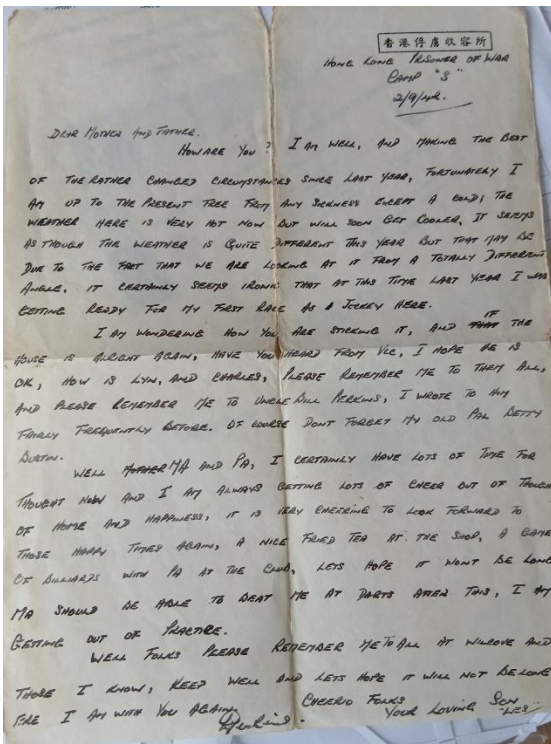 香港俘虜收容所
HONG KONG PRISONER OF WAR
CAMP "S"
2/9/42.
DEAR MOTHER AND FATHER.
HOW ARE YOU? I AM WELL, AND MAKING THE BEST
OF THE RATHER CHANGED CIRCUMSTANCES SINCE LAST YEAR, FORTUNATELY I
AM UP TO THE PRESENT FREE FROM ANY SICKNESS EXCEPT A COLD; THE
WEATHER HERE IS VERY HOT NOW BUT WILL SOON GET COOLER, IT SEEMS
AS THOUGH THE WEATHER IS QUITE DIFFERENT THIS YEAR BUT THAT MAY BE
DUE TO THE FACT THAT WE ARE LOOKING AT IT FROM A TOTALLY DIFFERENT
ANGLE. IT CERTAINLY SEEMS IRONIC THAT AT THIS TIME LAST YEAR I WAS
GETTING READY FOR MY FIRST RACE AS A JOCKEY HERE.
I AM WONDERING HOW YOU ARE STICKING IT, AND IF THE
HOUSE IS ALRIGHT AGAIN, HAVE YOU HEARD FROM VIC, I HOPE HE IS
OK, HOW IS LYN, AND CHARLES, PLEASE REMEMBER ME TO THEM ALL,
AND PLEASE REMEMBER ME TO UNCLE BILL PERKINS, I WROTE TO HIM
FAIRLY FREQUENTLY BEFORE. OF COURSE DONT FORGET MY OLD PAL BETTY
BURTON.
WELL MA AND PA, I CERTAINLY HAVE LOTS OF TIME FOR
THOUGHT NOW AND I AM ALWAYS GETTING LOTS OF CHEER OUT OF THOUGHT
OF HOME AND HAPPINESS, IT IS VERY CHEERING TO LOOK FORWARD TO
THOSE HAPPY TIMES AGAIN, A NICE FRIED TEA AT THE SHOP, A GAME
OF BILLIARDS WITH PA AT THE CLUB, LETS HOPE IT WONT BE LONG
MA SHOULD BE ABLE TO BEAT ME AT DARTS AFTER THIS, I AM
GETTING OUT OF PRACTICE.
WELL FOLKS PLEASE REMEMBER ME TO ALL AT WILCOVE AND
THOSE I KNOW, KEEP WELL AND LETS HOPE IT WILL NOT BE LONG
ERE I AM WITH YOU AGAIN. CHEERIO FOLKS
YOUR LOVING SON
"LES"